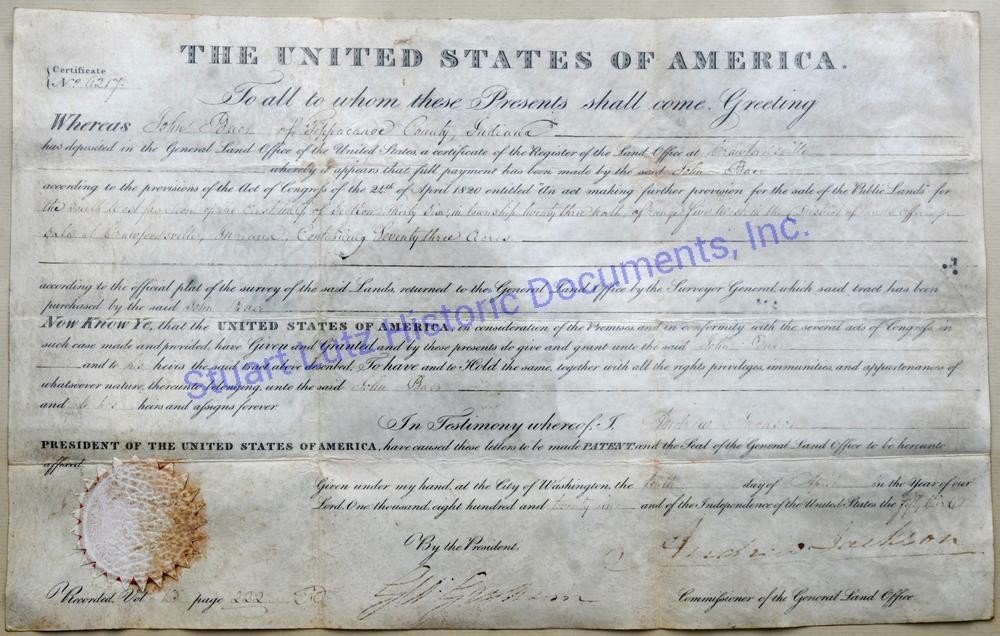 THE UNITED STATES OF AMERICA.
Certificate
No. 6217.
To all to whom these Presents shall come, Greeting
Whereas John of Tippacanoe County, Indiana
has deposited in the General Land Office of the United States, a certificate of the Register of the Land Office at Crawfordsville
whereby it appears that full payment has been made by the said John
according to the provisions of the Act of Congress of the 24th of April 1820 entitled "An act making further provision for the sale of the Public Lands" for
the West of the East half of Section thirty in township twenty three North, of range five West in the District of Lands offered for
Sale at Crawfordsville, Indiana, Containing Seventy three Acres
according to the official plat of the survey of the said Lands, returned to the General Land Office by the Surveyor General, which said tract has been
purchased by the said John
Now Know Ye, that the UNITED STATES OF AMERICA, in consideration of the Premises and in conformity with the several acts of Congress, in
such case made and provided, have Given and Granted, and by these presents do give and grant unto the said John
and to his heirs the said tract above described: To have and to Hold the same, together with all the rights privileges, immunities, and appurtenances of
whatsoever nature, thereunto belonging, unto the said John
and to his heirs and assigns forever
In Testimony whereof, I, Andrew Jackson
PRESIDENT OF THE UNITED STATES OF AMERICA, have caused these letters to be made PATENT, and the Seal of the General Land Office to be hereunto
affixed.
Given under my hand, at the City of Washington, the day of April in the Year of our
Lord, One thousand, eight hundred and twenty nine and of the Independence of the United States the fifty third
By the President, Andrew Jackson
Recorded, Vol page 222 Commissioner of the General Land Office
Stuart Lutz Historic Documents, Inc.